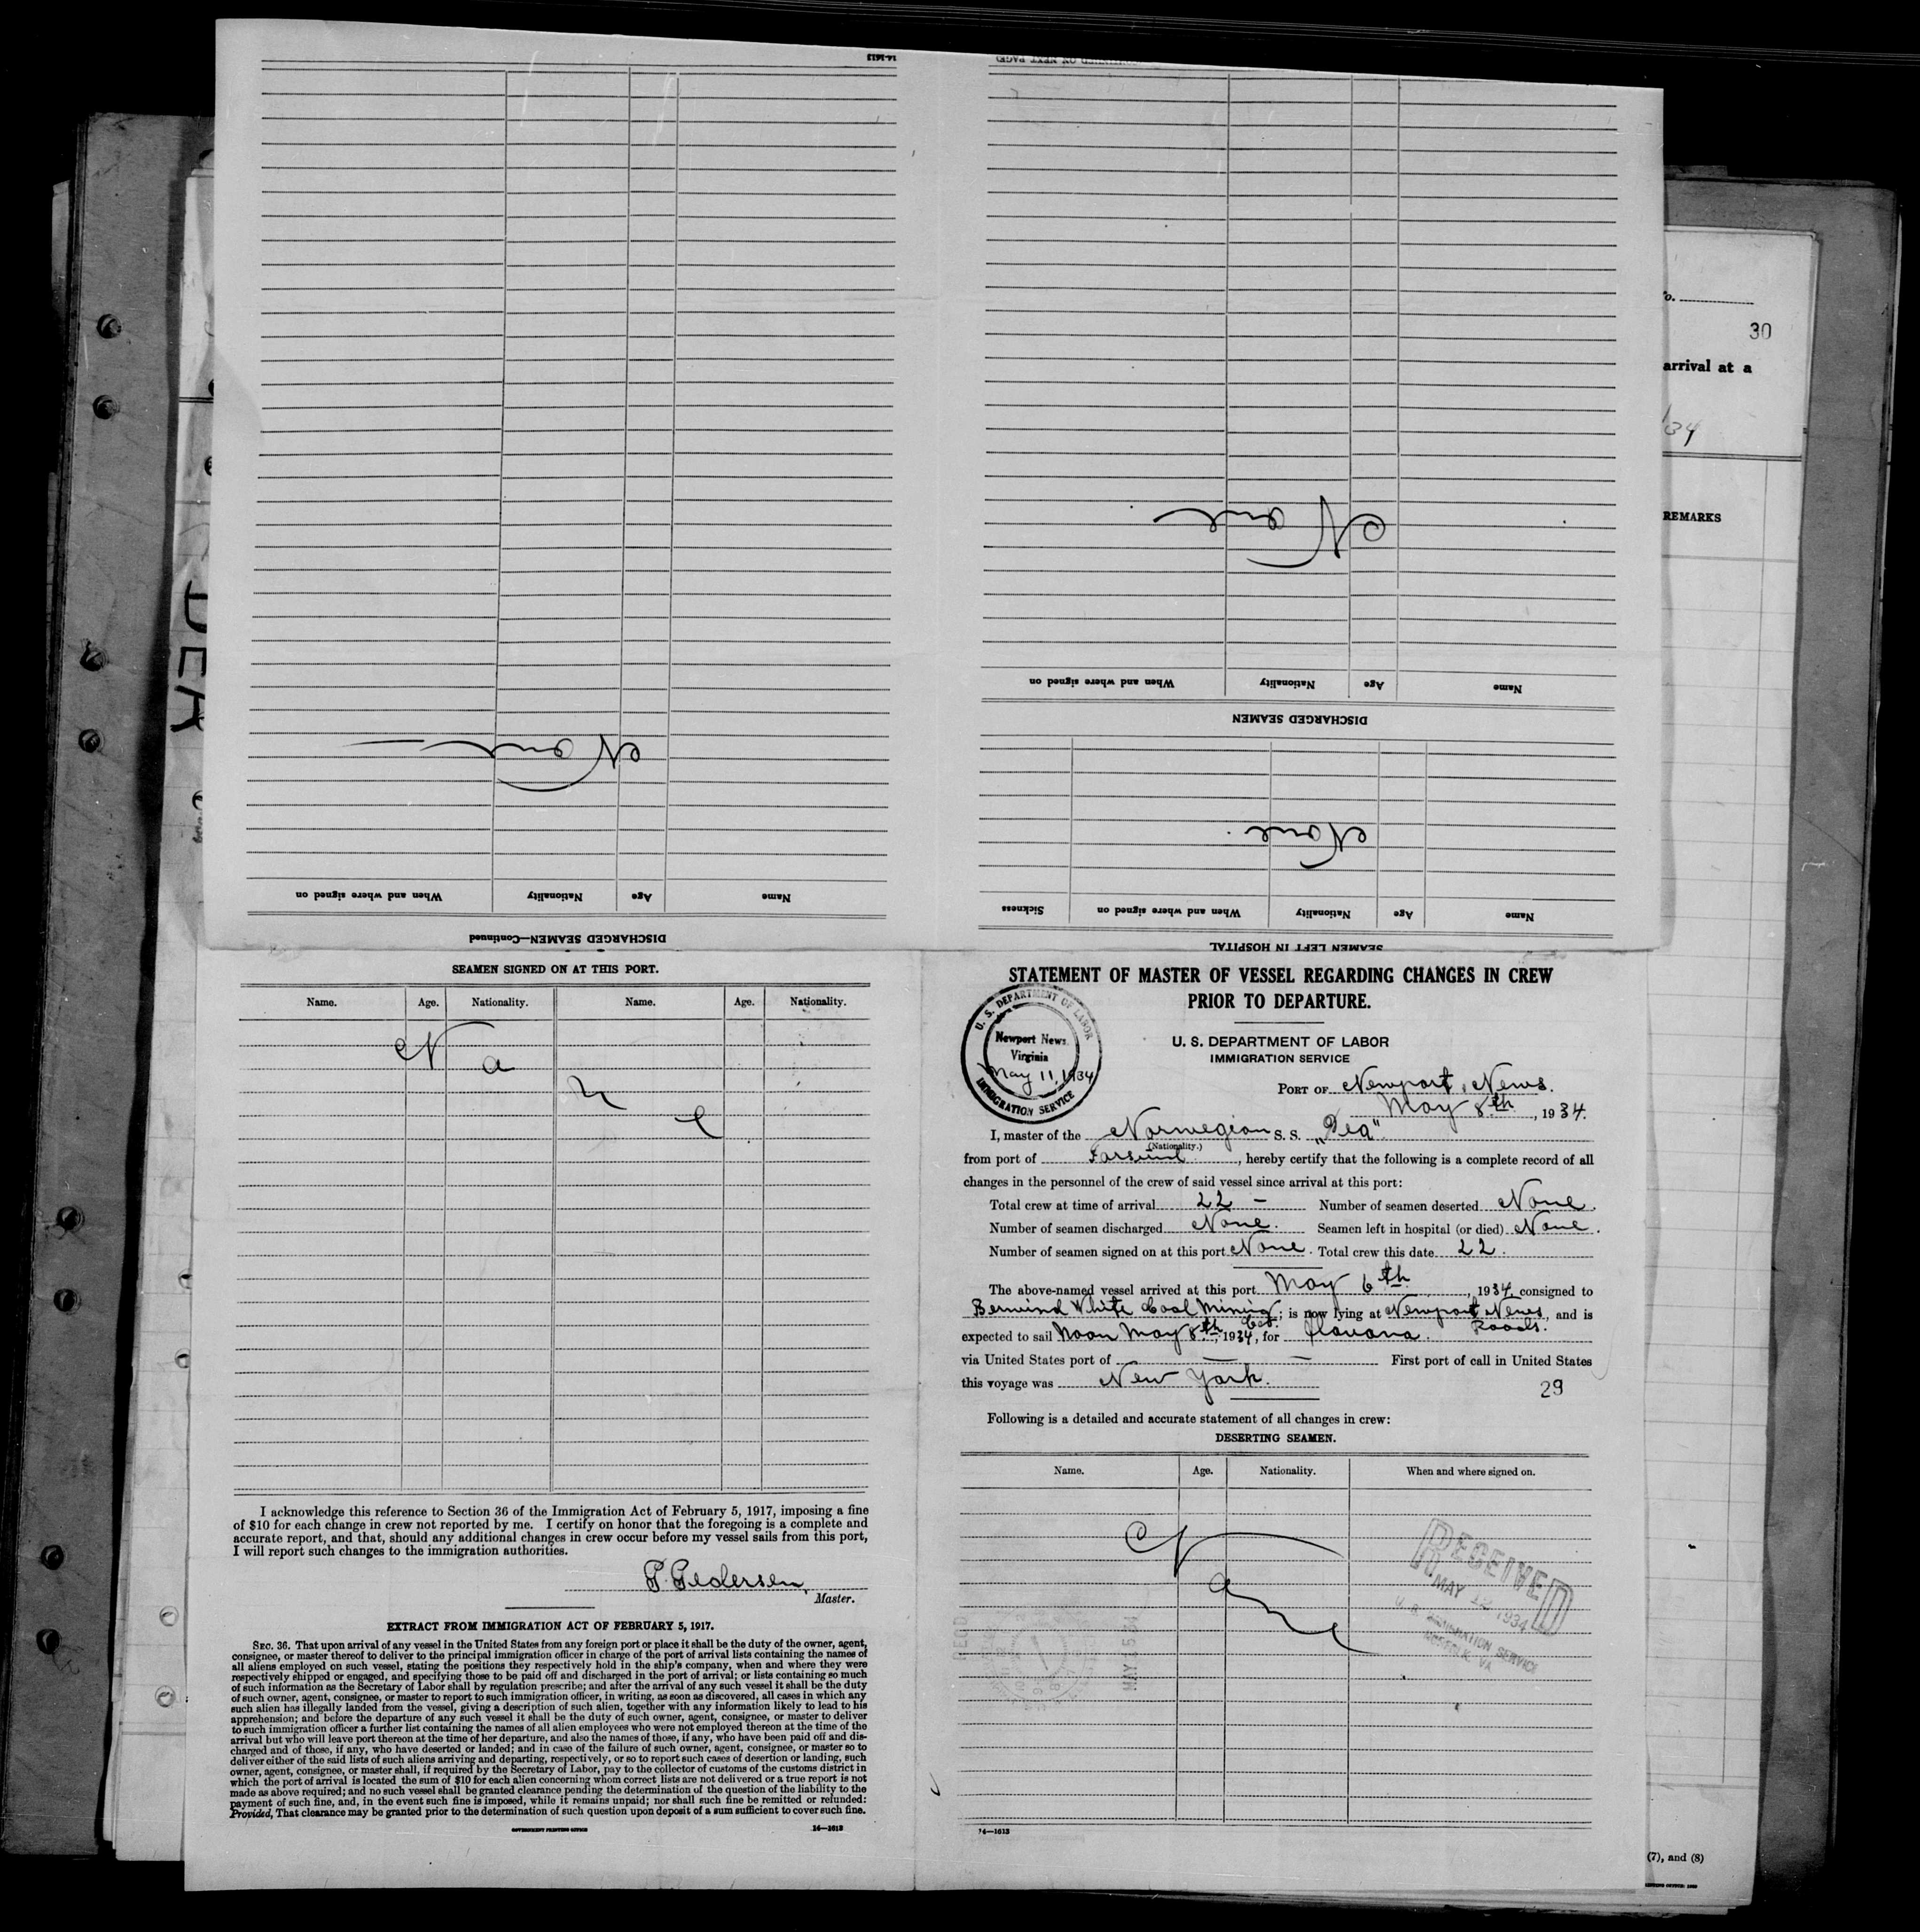 14-1613
DISCHARGED SEAMEN—Continued
Name Age Nationality When and where signed on
None
(CONTINUED ON NEXT PAGE)
SEAMEN LEFT IN HOSPITAL
Name Age Nationality When and where signed on Sickness
None
DISCHARGED SEAMEN
Name Age Nationality When and where signed on
None
30
arrival at a
34
REMARKS
(7), and (8)
SEAMEN SIGNED ON AT THIS PORT.
Name. Age. Nationality. Name. Age. Nationality.
None
I acknowledge this reference to Section 36 of the Immigration Act of February 5, 1917, imposing a fine
of $10 for each change in crew not reported by me. I certify on honor that the foregoing is a complete and
accurate report, and that, should any additional changes in crew occur before my vessel sails from this port,
I will report such changes to the immigration authorities.
P. Pedersen,
Master.
EXTRACT FROM IMMIGRATION ACT OF FEBRUARY 5, 1917.
SEC. 36. That upon arrival of any vessel in the United States from any foreign port or place it shall be the duty of the owner, agent,
consignee, or master thereof to deliver to the principal immigration officer in charge of the port of arrival lists containing the names of
all aliens employed on such vessel, stating the positions they respectively hold in the ship's company, when and where they were
respectively shipped or engaged, and specifying those to be paid off and discharged in the port of arrival; or lists containing so much
of such information as the Secretary of Labor shall by regulation prescribe; and after the arrival of any such vessel it shall be the duty
of such owner, agent, consignee, or master to report to such immigration officer, in writing, as soon as discovered, all cases in which any
such alien has illegally landed from the vessel, giving a description of such alien, together with any information likely to lead to his
apprehension; and before the departure of any such vessel it shall be the duty of such owner, agent, consignee, or master to deliver
to such immigration officer a further list containing the names of all alien employees who were not employed thereon at the time of the
arrival but who will leave port thereon at the time of her departure, and also the names of those, if any, who have been paid off and dis-
charged and of those, if any, who have deserted or landed; and in case of the failure of such owner, agent, consignee, or master so to
deliver either of the said lists of such aliens arriving and departing, respectively, or so to report such cases of desertion or landing, such
owner, agent, consignee, or master shall, if required by the Secretary of Labor, pay to the collector of customs of the customs district in
which the port of arrival is located the sum of $10 for each alien concerning whom correct lists are not delivered or a true report is not
made as above required; and no such vessel shall be granted clearance pending the determination of the question of the liability to the
payment of such fine, and, in the event such fine is imposed, while it remains unpaid; nor shall such fine be remitted or refunded:
Provided, That clearance may be granted prior to the determination of such question upon deposit of a sum sufficient to cover such fine.
GOVERNMENT PRINTING OFFICE 14—1613
STATEMENT OF MASTER OF VESSEL REGARDING CHANGES IN CREW
PRIOR TO DEPARTURE.
U. S. DEPARTMENT OF LABOR
Newport News
Virginia
May 11, 1934
IMMIGRATION SERVICE
U. S. DEPARTMENT OF LABOR
IMMIGRATION SERVICE
PORT OF Newport News.
May 8th, 1934.
I, master of the Norwegian S. S.
(Nationality.)
from port of Farsund, hereby certify that the following is a complete record of all
changes in the personnel of the crew of said vessel since arrival at this port:
Total crew at time of arrival 22 - Number of seamen deserted None.
Number of seamen discharged None. Seamen left in hospital (or died) None.
Number of seamen signed on at this port None. Total crew this date 22.
The above-named vessel arrived at this port May 6th, 1934, consigned to
Berwind White Coal Mining Co.; is now lying at Newport News Roads., and is
expected to sail Noon May 8th, 1934, for Havana.
via United States port of — — First port of call in United States
this voyage was New York.
29
Following is a detailed and accurate statement of all changes in crew:
DESERTING SEAMEN.
Name. Age. Nationality. When and where signed on.
None
RECEIVED
MAY 12 1934
U. S. IMMIGRATION SERVICE
NORFOLK, VA
14—1613